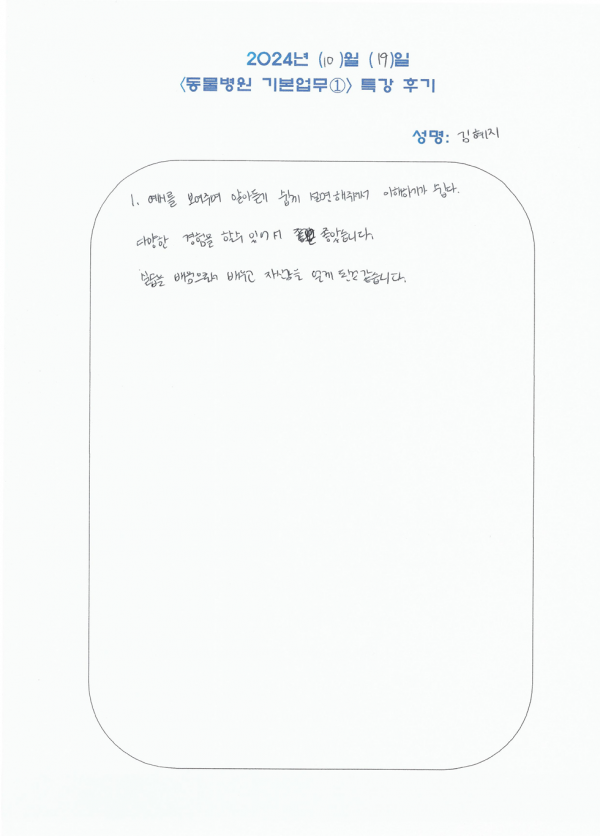 2024년 (10)월 (19)일
<동물병원 기본업무①> 특강 후기
성명: 김혜지
1. 예시를 보여주며 알아듣기 쉽게 설명해줘서 이해하기가 쉽다.
다양한 경험을 할수 있어서 좋았습니다.
배우고 자신감을 얻게 된것 같습니다.